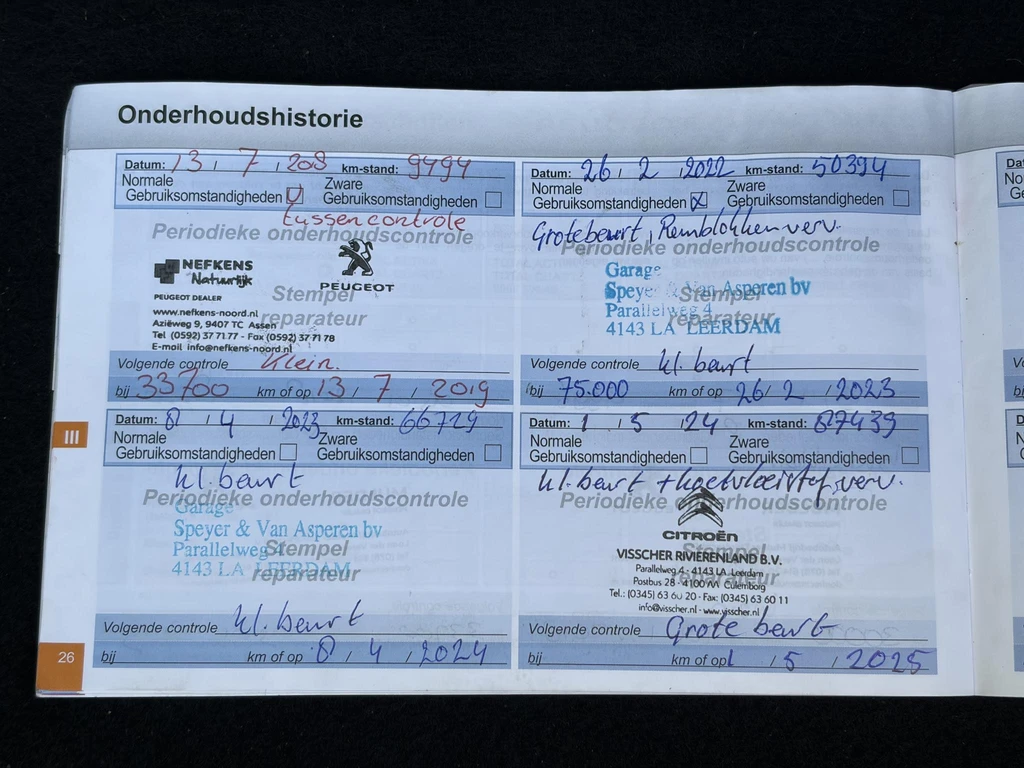 Onderhoudshistorie
Datum: 13 / 7 / 208 km-stand: 9494
Normale Gebruiksomstandigheden Zware Gebruiksomstandigheden
tussencontrole
Periodieke onderhoudscontrole
NEFKENS
Natuurlijk
PEUGEOT DEALER
PEUGEOT
Stempel
reparateur
www.nefkens-noord.nl
Aziëweg 9, 9407 TC Assen
Tel (0592) 37 71 77 - Fax (0592) 37 71 78
E-mail info@nefkens-noord.nl
Volgende controle Klein.
bij 33700 km of op 13 / 7 / 2019
Datum: 26 / 2 / 2022 km-stand: 50394
Normale Gebruiksomstandigheden Zware Gebruiksomstandigheden
Grote beurt, Remblokken verv.
Periodieke onderhoudscontrole
Garage
Speyer & Van Asperen bv
Parallelweg 4
4143 LA LEERDAM
Stempel
reparateur
Volgende controle kl. beurt
bij 75.000 km of op 26 / 2 / 2023
III
Datum: 8 / 4 / 2023 km-stand: 66729
Normale Gebruiksomstandigheden Zware Gebruiksomstandigheden
kl. beurt
Periodieke onderhoudscontrole
Garage
Speyer & Van Asperen bv
Parallelweg 4
4143 LA LEERDAM
Stempel
reparateur
Volgende controle kl. beurt
bij km of op 8 / 4 / 2024
Datum: 1 / 5 / 24 km-stand: 87439
Normale Gebruiksomstandigheden Zware Gebruiksomstandigheden
kl. beurt + koelvloeistof verv.
Periodieke onderhoudscontrole
CITROËN
VISSCHER RIVIERENLAND B.V.
Parallelweg 4 - 4143 LA Leerdam
Postbus 28 - 4100 AA Culemborg
Tel.: (0345) 63 60 20 - Fax: (0345) 63 60 11
info@visscher.nl - www.visscher.nl
Stempel
reparateur
Volgende controle Grote beurt
bij km of op 1 / 5 / 2025
26